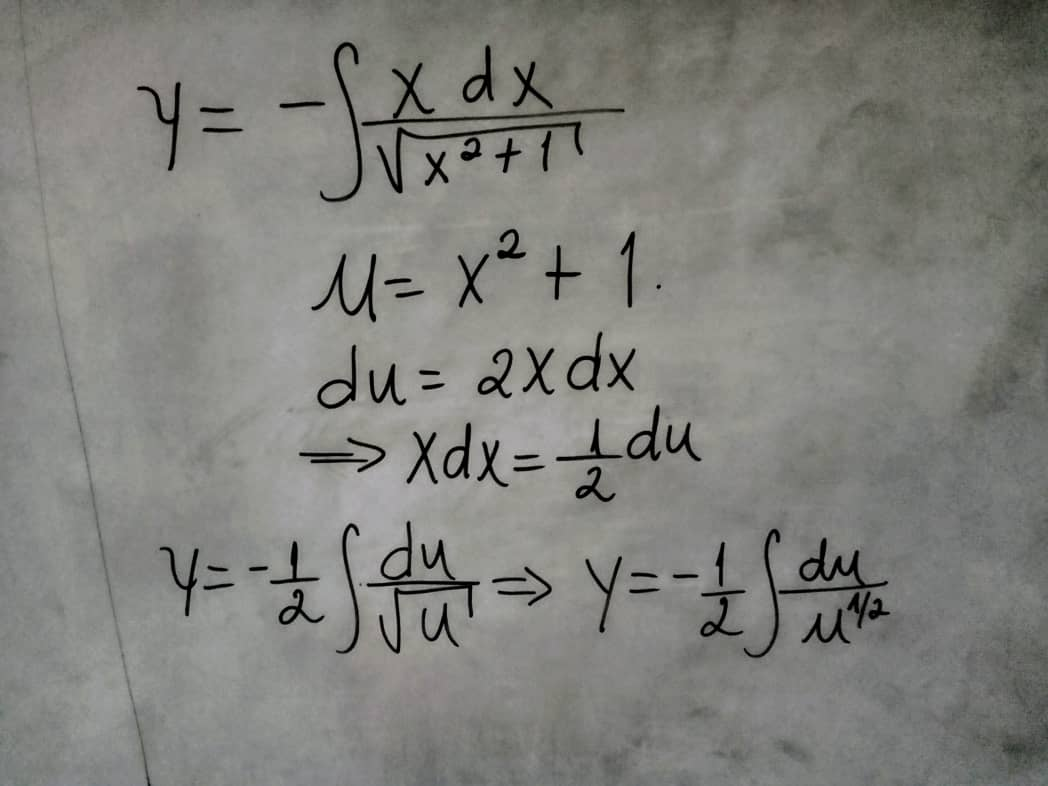 y = -∫ x dx / √(x²+1)
u = x² + 1.
du = 2x dx
⇒ x dx = 1/2 du
y = -1/2 ∫ du/√u ⇒ y = -1/2 ∫ du/u^(1/2)